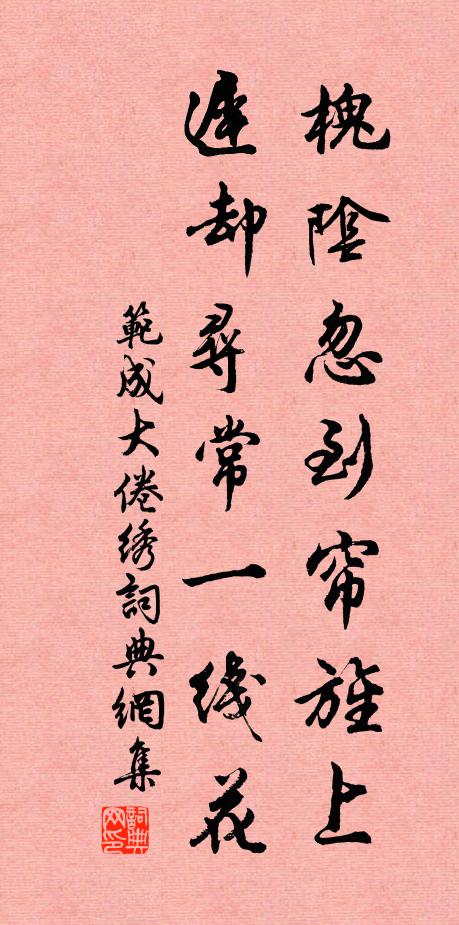 槐陰忽到帘旌上
遲却尋常一线花
範成大倦绣詞典網集
詞典网印